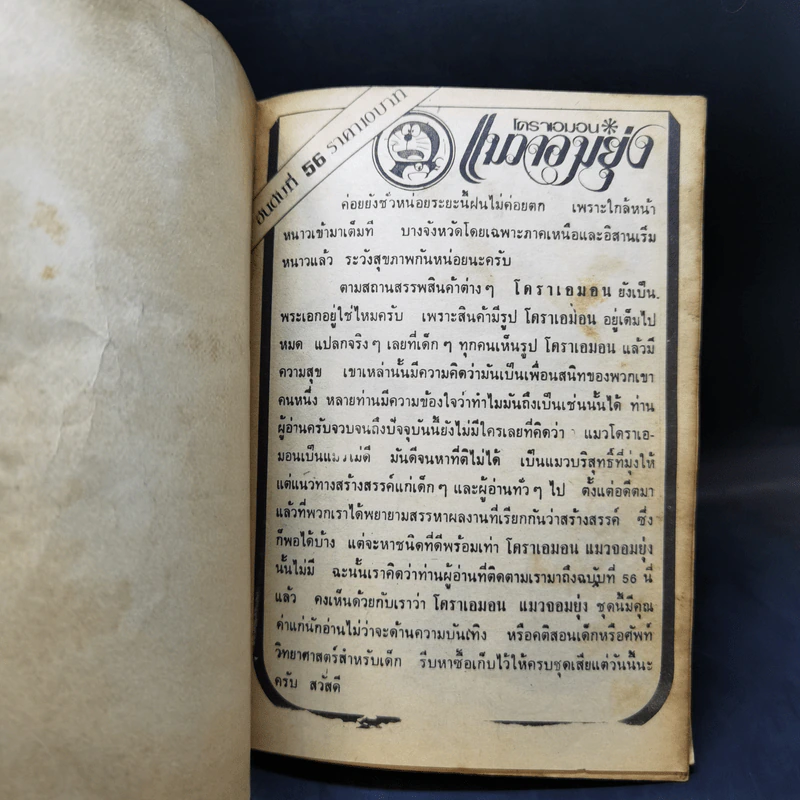 อันดับที่ 56 ราคา 10 บาท
โดราเอมอน
แมวจอมยุ่ง
ค่อยยังชั่วหน่อยระยะนี้ฝนไม่ค่อยตก เพราะใกล้หน้า
หนาวเข้ามาเต็มที บางจังหวัดโดยเฉพาะภาคเหนือและอิสานเริ่ม
หนาวแล้ว ระวังสุขภาพกันหน่อยนะครับ
ตามสถานสรรพสินค้าต่าง ๆ โดราเอมอน ยังเป็น
พระเอกอยู่ใช่ไหมครับ เพราะสินค้ามีรูป โดราเอมอน อยู่เต็มไป
หมด แปลกจริง ๆ เลยที่เด็ก ๆ ทุกคนเห็นรูป โดราเอมอน แล้วมี
ความสุข เขาเหล่านั้นมีความคิดว่ามันเป็นเพื่อนสนิทของพวกเขา
คนหนึ่ง หลายท่านมีความข้องใจว่าทำไมมันถึงเป็นเช่นนั้นได้ ท่าน
ผู้อ่านครับจวบจนถึงปัจจุบันนี้ยังไม่มีใครเลยที่คิดว่า แมวโดราเอ-
มอนเป็นแมวไม่ดี มันดีจนหาที่ติไม่ได้ เป็นแมวบริสุทธิ์ที่มุ่งให้
แต่แนวทางสร้างสรรค์แก่เด็ก ๆ และผู้อ่านทั่ว ๆ ไป ตั้งแต่อดีตมา
แล้วที่พวกเราได้พยายามสรรหาผลงานที่เรียกกันว่าสร้างสรรค์ ซึ่ง
ก็พอได้บ้าง แต่จะหาชนิดที่ดีพร้อมเท่า โดราเอมอน แมวจอมยุ่ง
นั้นไม่มี ฉะนั้นเราคิดว่าท่านผู้อ่านที่ติดตามเรามาถึงฉบับที่ 56 นี้
แล้ว คงเห็นด้วยกับเราว่า โดราเอมอน แมวจอมยุ่ง ชุดนี้มีคุณ
ค่าแก่นักอ่านไม่ว่าจะด้านความบันเทิง หรือคติสอนเด็กหรือศัพท์
วิทยาศาสตร์สำหรับเด็ก รีบหาซื้อเก็บไว้ให้ครบชุดเสียแต่วันนี้นะ
ครับ สวัสดี